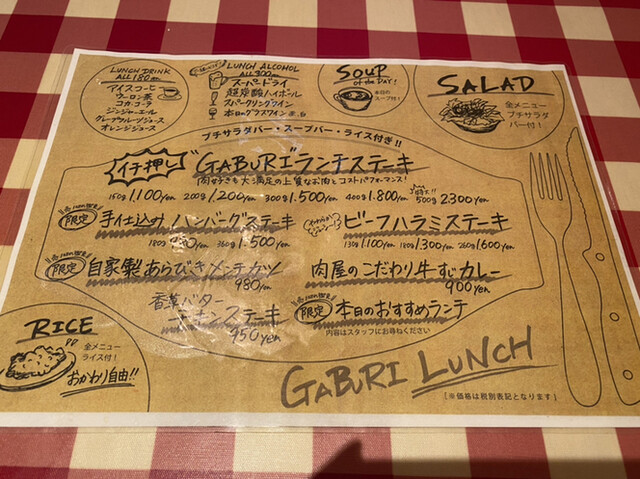 LUNCH DRINK
ALL 180yen
アイスコーヒー
ウーロン茶
コカ・コーラ
ジンジャーエール
グレープフルーツジュース
オレンジジュース
LUNCH ALCOHOL
ALL 300yen
スーパードライ
超炭酸ハイボール
スパークリングワイン
本日のグラスワイン 赤・白
SOUP
of the DAY!
本日の
スープ付!
SALAD
全メニュー
プチサラダ
バー付!
プチサラダバー・スープバー・ライス付き!!
イチ押し
"GABURI"ランチステーキ
肉好きも大満足の上質なお肉とコストパフォーマンス!
150g 1,100yen 200g 1,200yen 300g 1,500yen 400g 1,800yen 500g 2,300yen
限定
手仕込みハンバーグステーキ
180g 980yen 360g 1,500yen
ビーフハラミステーキ
130g 1,100yen 180g 1,300yen 260g 1,600yen
限定
自家製あらびきメンチカツ
980yen
肉屋のこだわり牛すじカレー
900yen
香草バター
チキンステーキ
950yen
限定
本日のおすすめランチ
内容はスタッフにお尋ねください
RICE
全メニュー
ライス付!
おかわり自由!!
GABURI LUNCH
[※価格は税別表記となります]